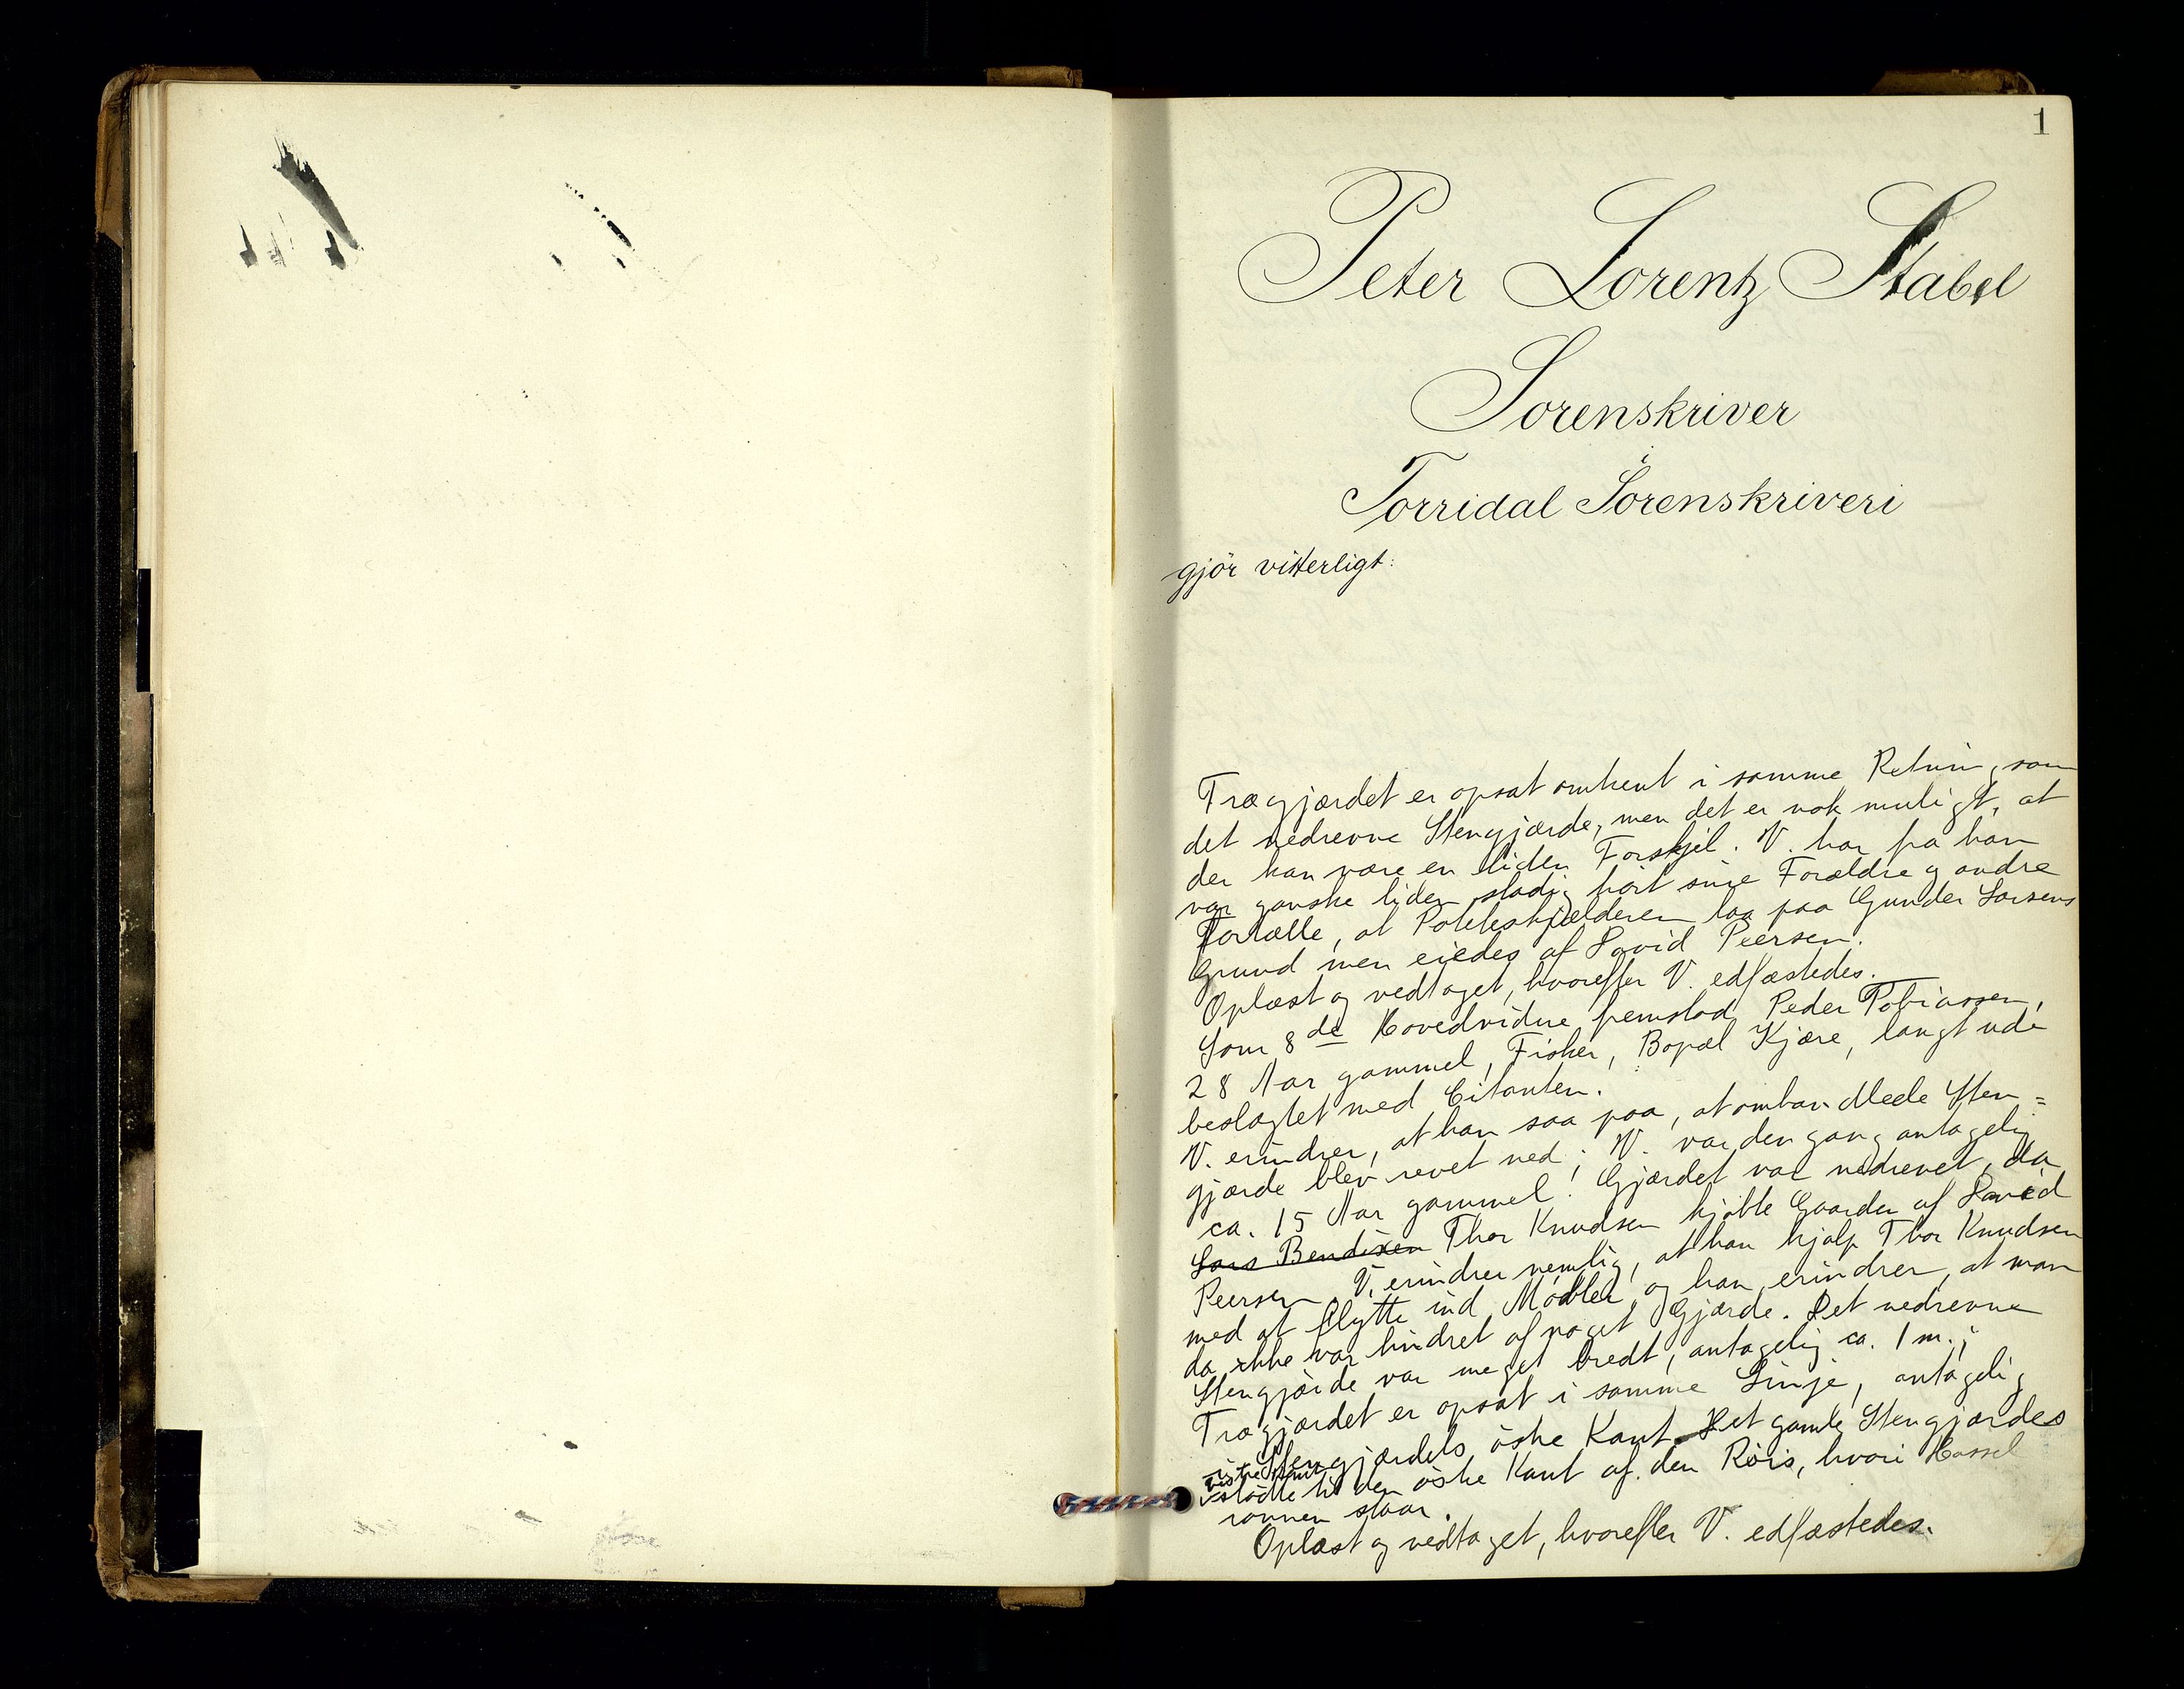 1
Peter Lorentz Stabel
Sorenskriver
i
Torridal Sorenskriveri
gjör vitterligt:
Trægjærdet er opsat omtrent i samme Retning som
det nedrevne Stengjærde, men det er nok muligt, at
der kan være en liden Forskjel. V. har fra han
var ganske liden stadig hört sine Forældre og andre
fortælle, at Poteteskjælderen laa paa Gunder Larsens
Grund men eiedes af David Peersen.
Oplæst og vedtaget, hvorefter V. edfæstedes.
Som 8de Hovedvidne fremstod Peder Tobiassen,
28 Aar gammel, Fisker, Bopæl Kjære, langt ude
beslægtet med Citanten.
V. erindrer, at han saa paa, at omhandlede Sten=
gjærde blev revet ned; V. var den gang antagelig
ca. 15 Aar gammel. Gjærdet var nedrevet, da
Lars Bendixen Thor Knudsen kjöbte Gaarden af David
Peersen. V. erindrer nemlig, at han hjalp Thor Knudsen
med at flytte ind Möbler og han erindrer, at man
da ikke var hindret af noget Gjærde. Det nedrevne
Stengjærde var meget bredt, antagelig ca. 1 m.;
Trægjærdet er opsat i samme Linje, antagelig
i Stengjærdets östre Kant. Det gamle Stengjærdes
vestre Kant
stödte til den östre Kant af den Röis, hvori Hassel
rönnen staar.
Oplæst og vedtaget, hvorefter V. edfæstedes.